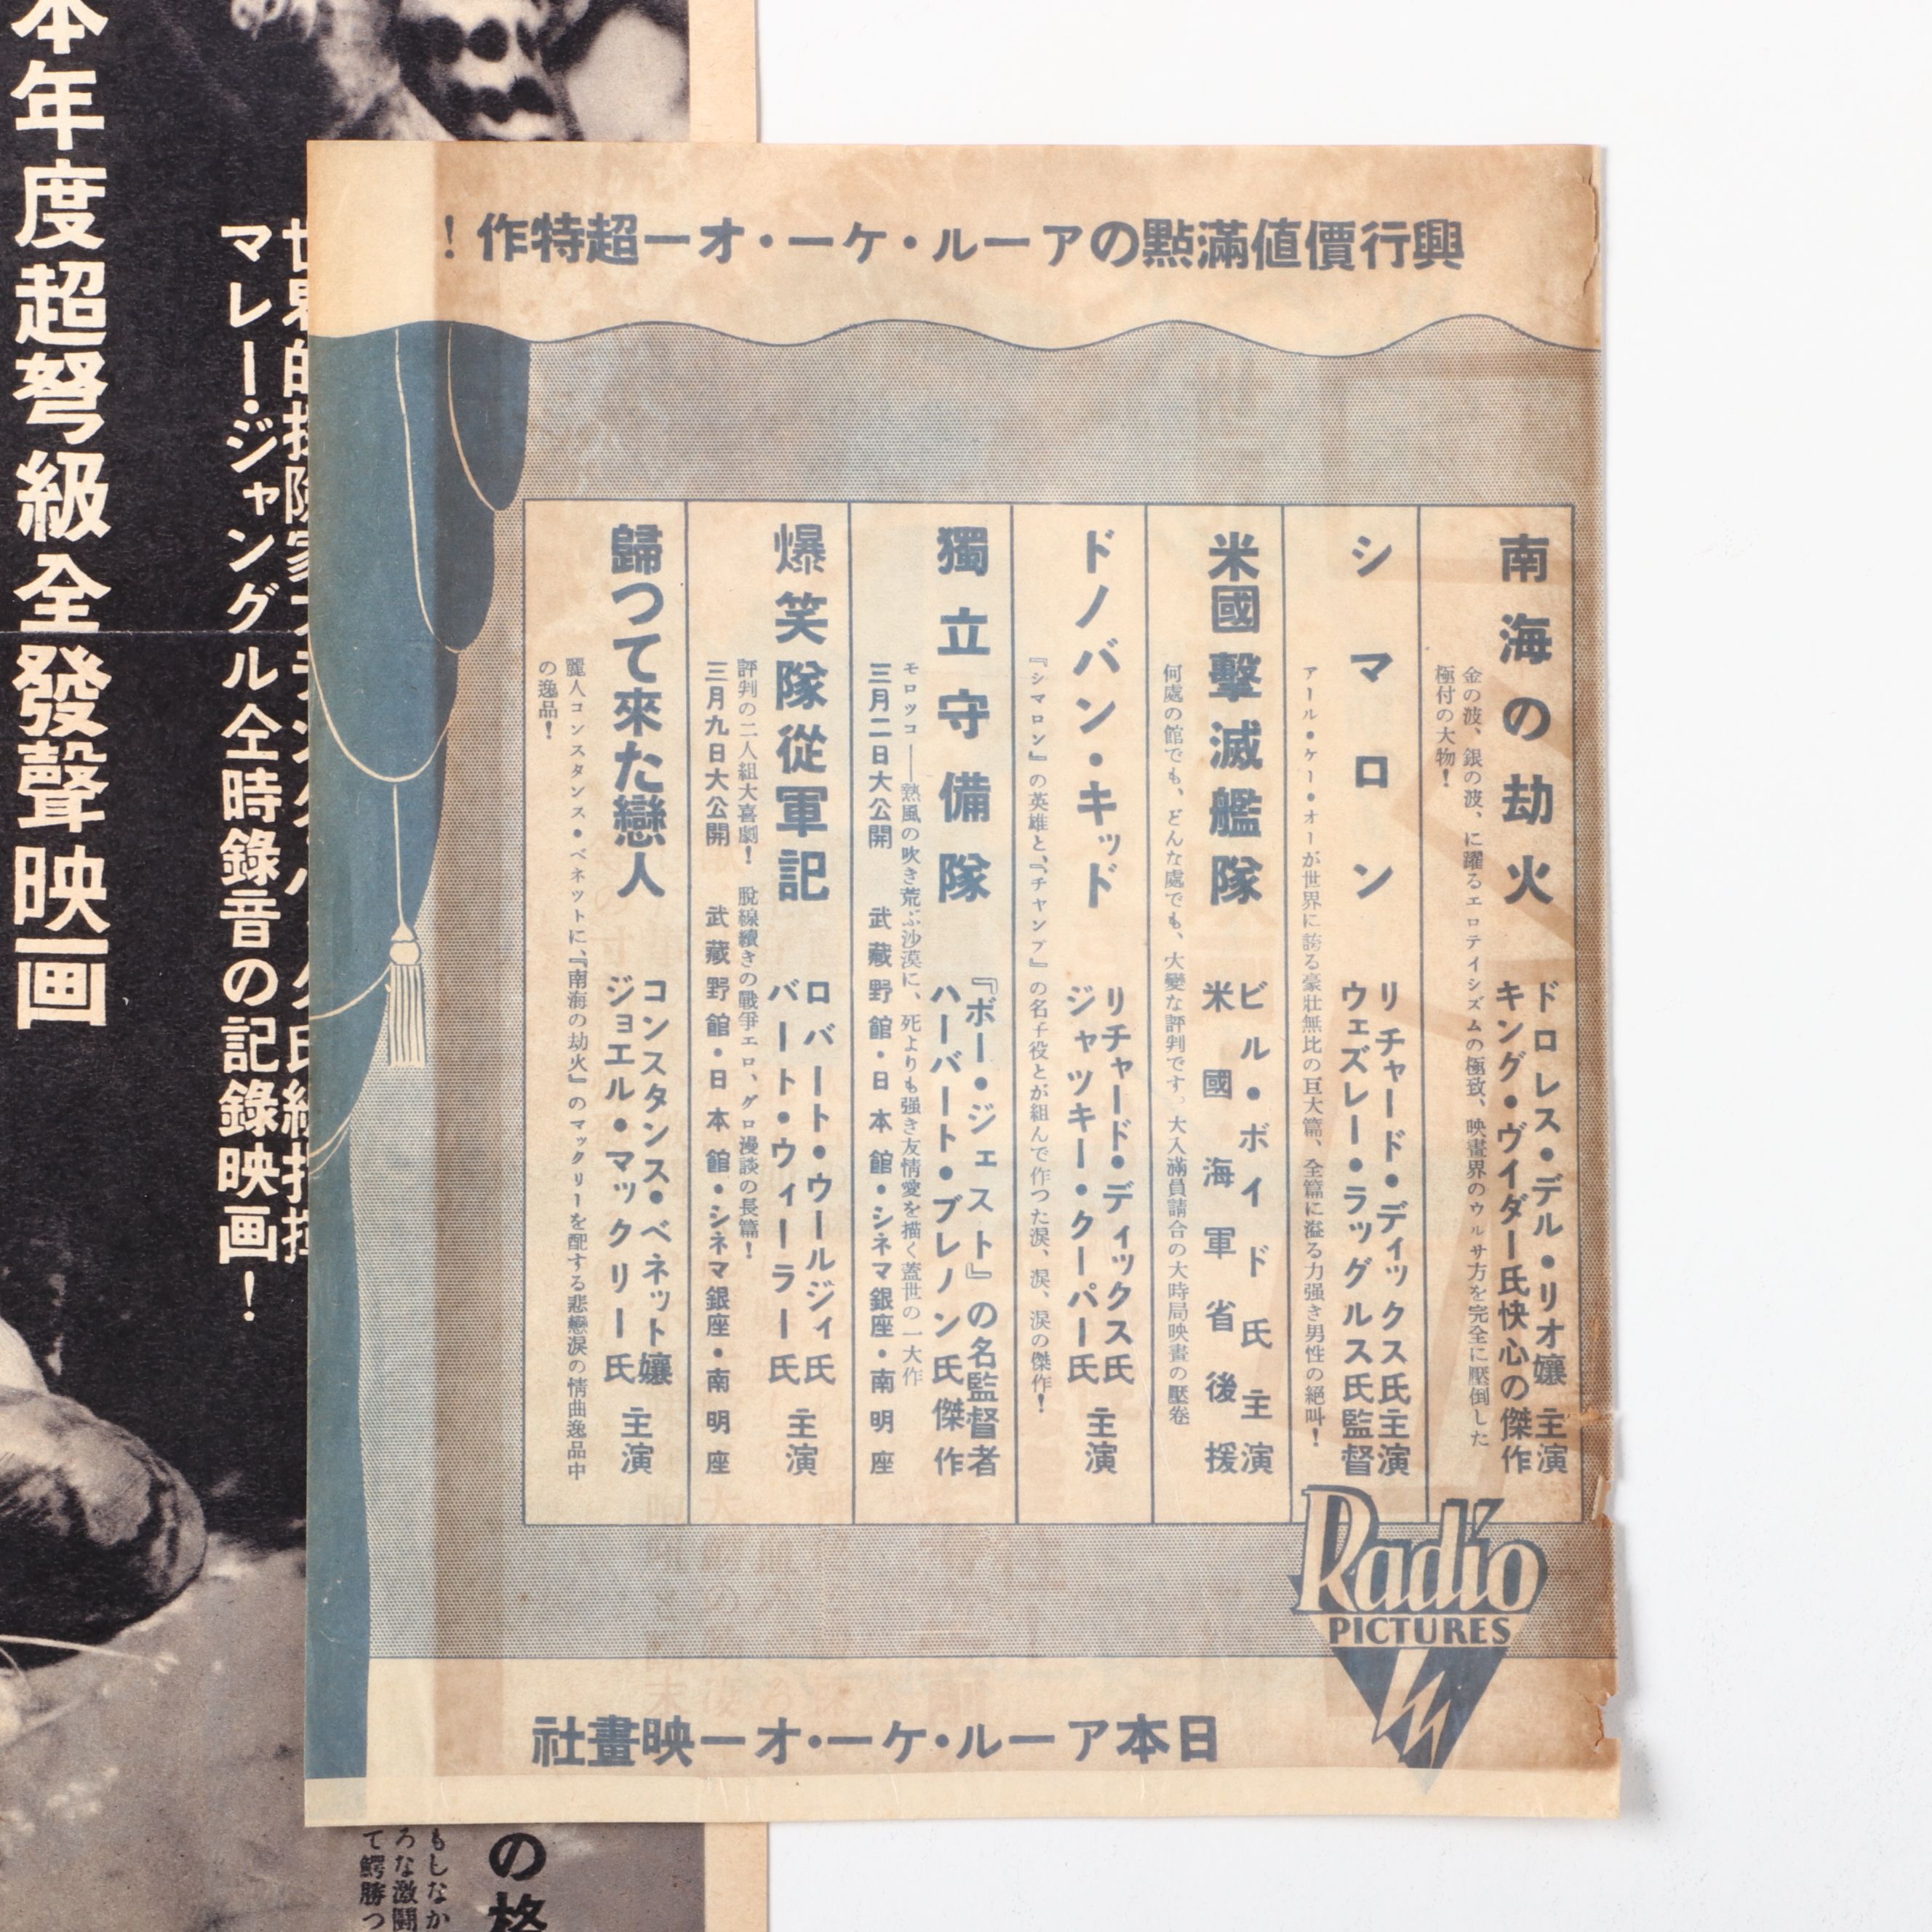 興行價値滿點のアール・ケー・オー超特作!
南海の劫火
ドロレス・デル・リオ孃 主演
キング・ヴイダー氏快心の傑作
金の波、銀の波、に躍るエロテイシズムの極致、映畫界のウルサ方を完全に壓倒した
極付の大物!
シマロン
リチャード・ディックス氏主演
ウェズレー・ラッグルス氏監督
アール・ケー・オーが世界に誇る豪壯無比の巨大篇、全篇に溢る力强き男性の絕叫!
米國擊滅艦隊
ビル・ボイド氏 主演
米國海軍省後援
何處の館でも、どんな處でも、大變な評判です。大入滿員請合の大時局映畫の壓卷
ドノバン・キッド
リチャード・ディックス氏
ジャッキー・クーパー氏
主演
『シマロン』の英雄と、『チャンプ』の名子役とが組んで作つた淚、淚、淚の傑作!
獨立守備隊
『ボー・ジェスト』の名監督者
ハーバート・ブレノン氏傑作
モロツコ——熱風の吹き荒ぶ沙漠に、死よりも强き友情愛を描く蓋世の一大作
三月二日大公開 武藏野館・日本館・シネマ銀座・南明座
爆笑隊從軍記
ロバート・ウールジィ氏
バート・ウィーラー氏
主演
評判の二人組大喜劇! 脫線續きの戰爭エロ、グロ漫談の長篇!
三月九日大公開 武藏野館・日本館・シネマ銀座・南明座
歸つて來た戀人
コンスタンス・ベネット孃
ジョエル・マックリー氏
主演
麗人コンスタンス・ベネツトに、『南海の劫火』のマックリーを配する悲戀淚の情曲逸品中
の逸品!
Radio
PICTURES
日本アール・ケー・オー映畫社
マレー・ジャングル全時錄音の記錄映画!
本年度超弩級全發聲映画
もしなか
ろな激鬪
て鰐勝つ